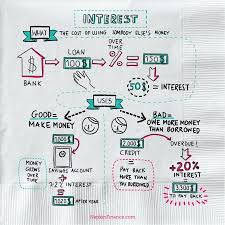 INTEREST
WHAT
THE COST OF USING SOMEBODY ELSE'S MONEY
LOAN
OVER
TIME
100$
%
=
150$
BANK
50$ = INTEREST
USES
GOOD=
MAKE MONEY
BAD=
OWE MORE MONEY
THAN BORROWED
OVERDUE!
MONEY
GROWS
SAVINGS ACCOUNT
CREDIT
+20%
INTEREST
INTEREST
=
PAY BACK
MORE THAN
YOU BORROWED
TO PAY
AFTER YEAR
NapkinFinance.com